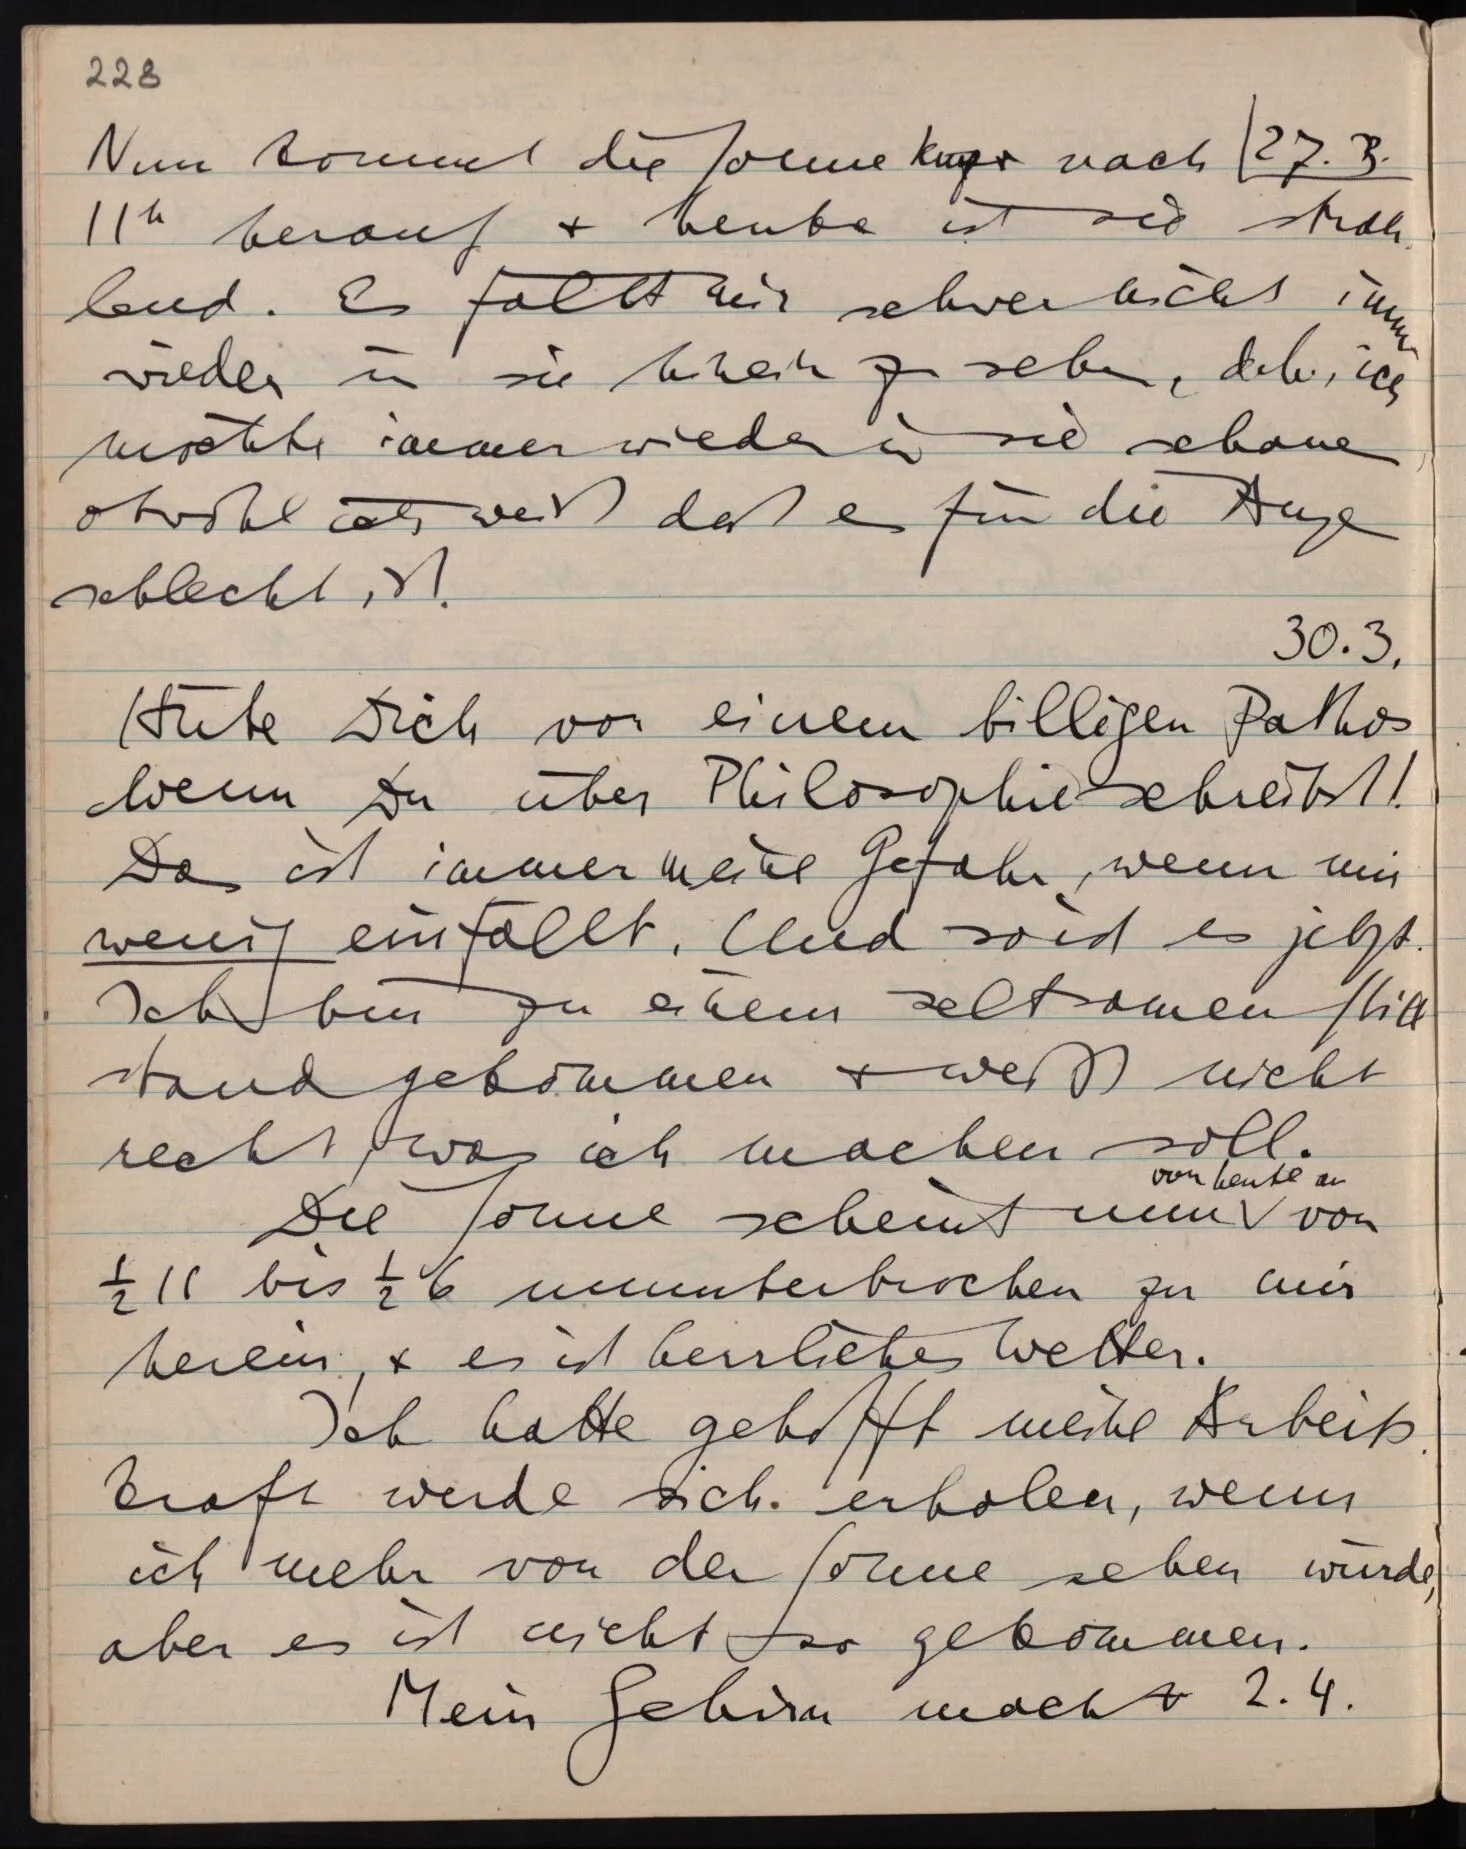 228
Nun kommt die Sonne kurz nach 27.3.
11h herauf + heute ist sie strah-
lend. Es fällt mir schwer nicht immer
wieder in sie hinein zu sehen, d.h., ich
möchte immer wieder in sie schauen
obwohl ich weiß daß es für die Augen
schlecht ist.
30.3.
Hüte Dich vor einem billigen Pathos
wenn Du über Philosophie schreibst!
Das ist immer meine Gefahr, wenn mir
wenig einfällt. Und so ist es jetzt.
Ich bin zu einem seltsamen Still
stand gekommen + weiß nicht
recht, was ich machen soll.
von heute an
Die Sonne scheint nun von
½11 bis ½6 ununterbrochen zu mir
herein, + es ist herrliches Wetter.
Ich hatte gehofft meine Arbeits-
kraft werde sich erholen, wenn
ich mehr von der Sonne sehen würde,
aber es ist nicht so gekommen.
Mein Gehirn macht 2.4.